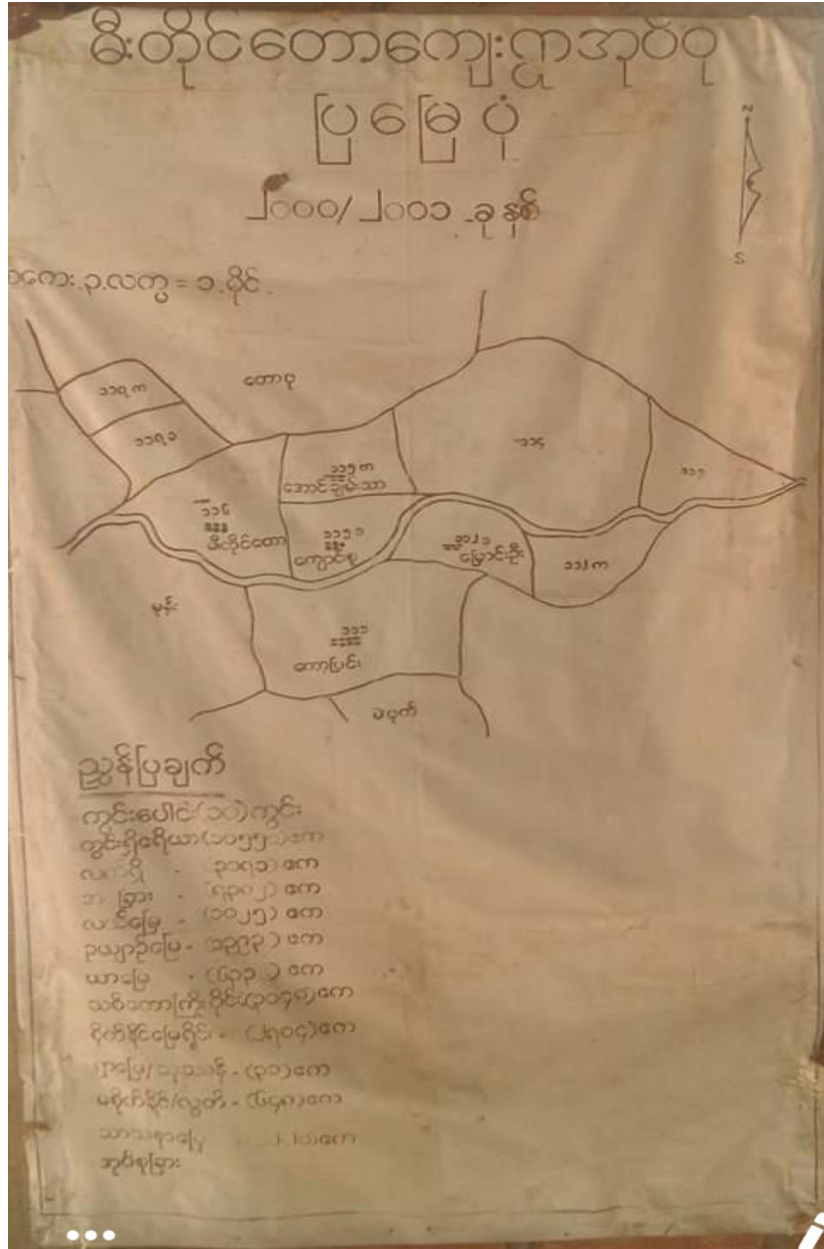 မီးတိုင်တောကျေးရွာအုပ်စု
ပြမြေပုံ
၂၀၀၀/၂၀၀၁ ခုနှစ်
စကေး.၃.လက္မ = ၁.မိုင်
N
S
၁၁၇က
တောပု
၁၁၇ခ
၁၁၄
၁၁၅က
အောင်ချမ်းသာ
၁၁၆
မီးတိုင်တော
၁၁၅ခ
ကျောင်းစု
၁၁၂ခ
မြောင်းဦး
၁၁၂က
မုန်း
၁၁၁
ကောပြင်း
မဲပုတ်
ညွှန်ပြချက်
ကွင်းပေါင်း(၁၀)ကွင်း
ကွင်းရှိဧရိယာ ဧက
(၃၁၇၁) ဧက
အခြား - (၇၃၈၂) ဧက
လယ်မြေ - (၁၀၂၅) ဧက
ဥယျာဉ်မြေ - (၁၃၉၃) ဧက
ယာမြေ - ဧက
သစ်တောကြိုးဝိုင်း(၃၀၄၈)ဧက
စိုက်နိုင်မြေရိုင်း - (၂၈၀၄)ဧက
(၃၁)ဧက
မစိုက်နိုင်/လွတ် - (၆၄၈)ဧက
သာသနာမြေ ဧက
အုပ်စုခြား